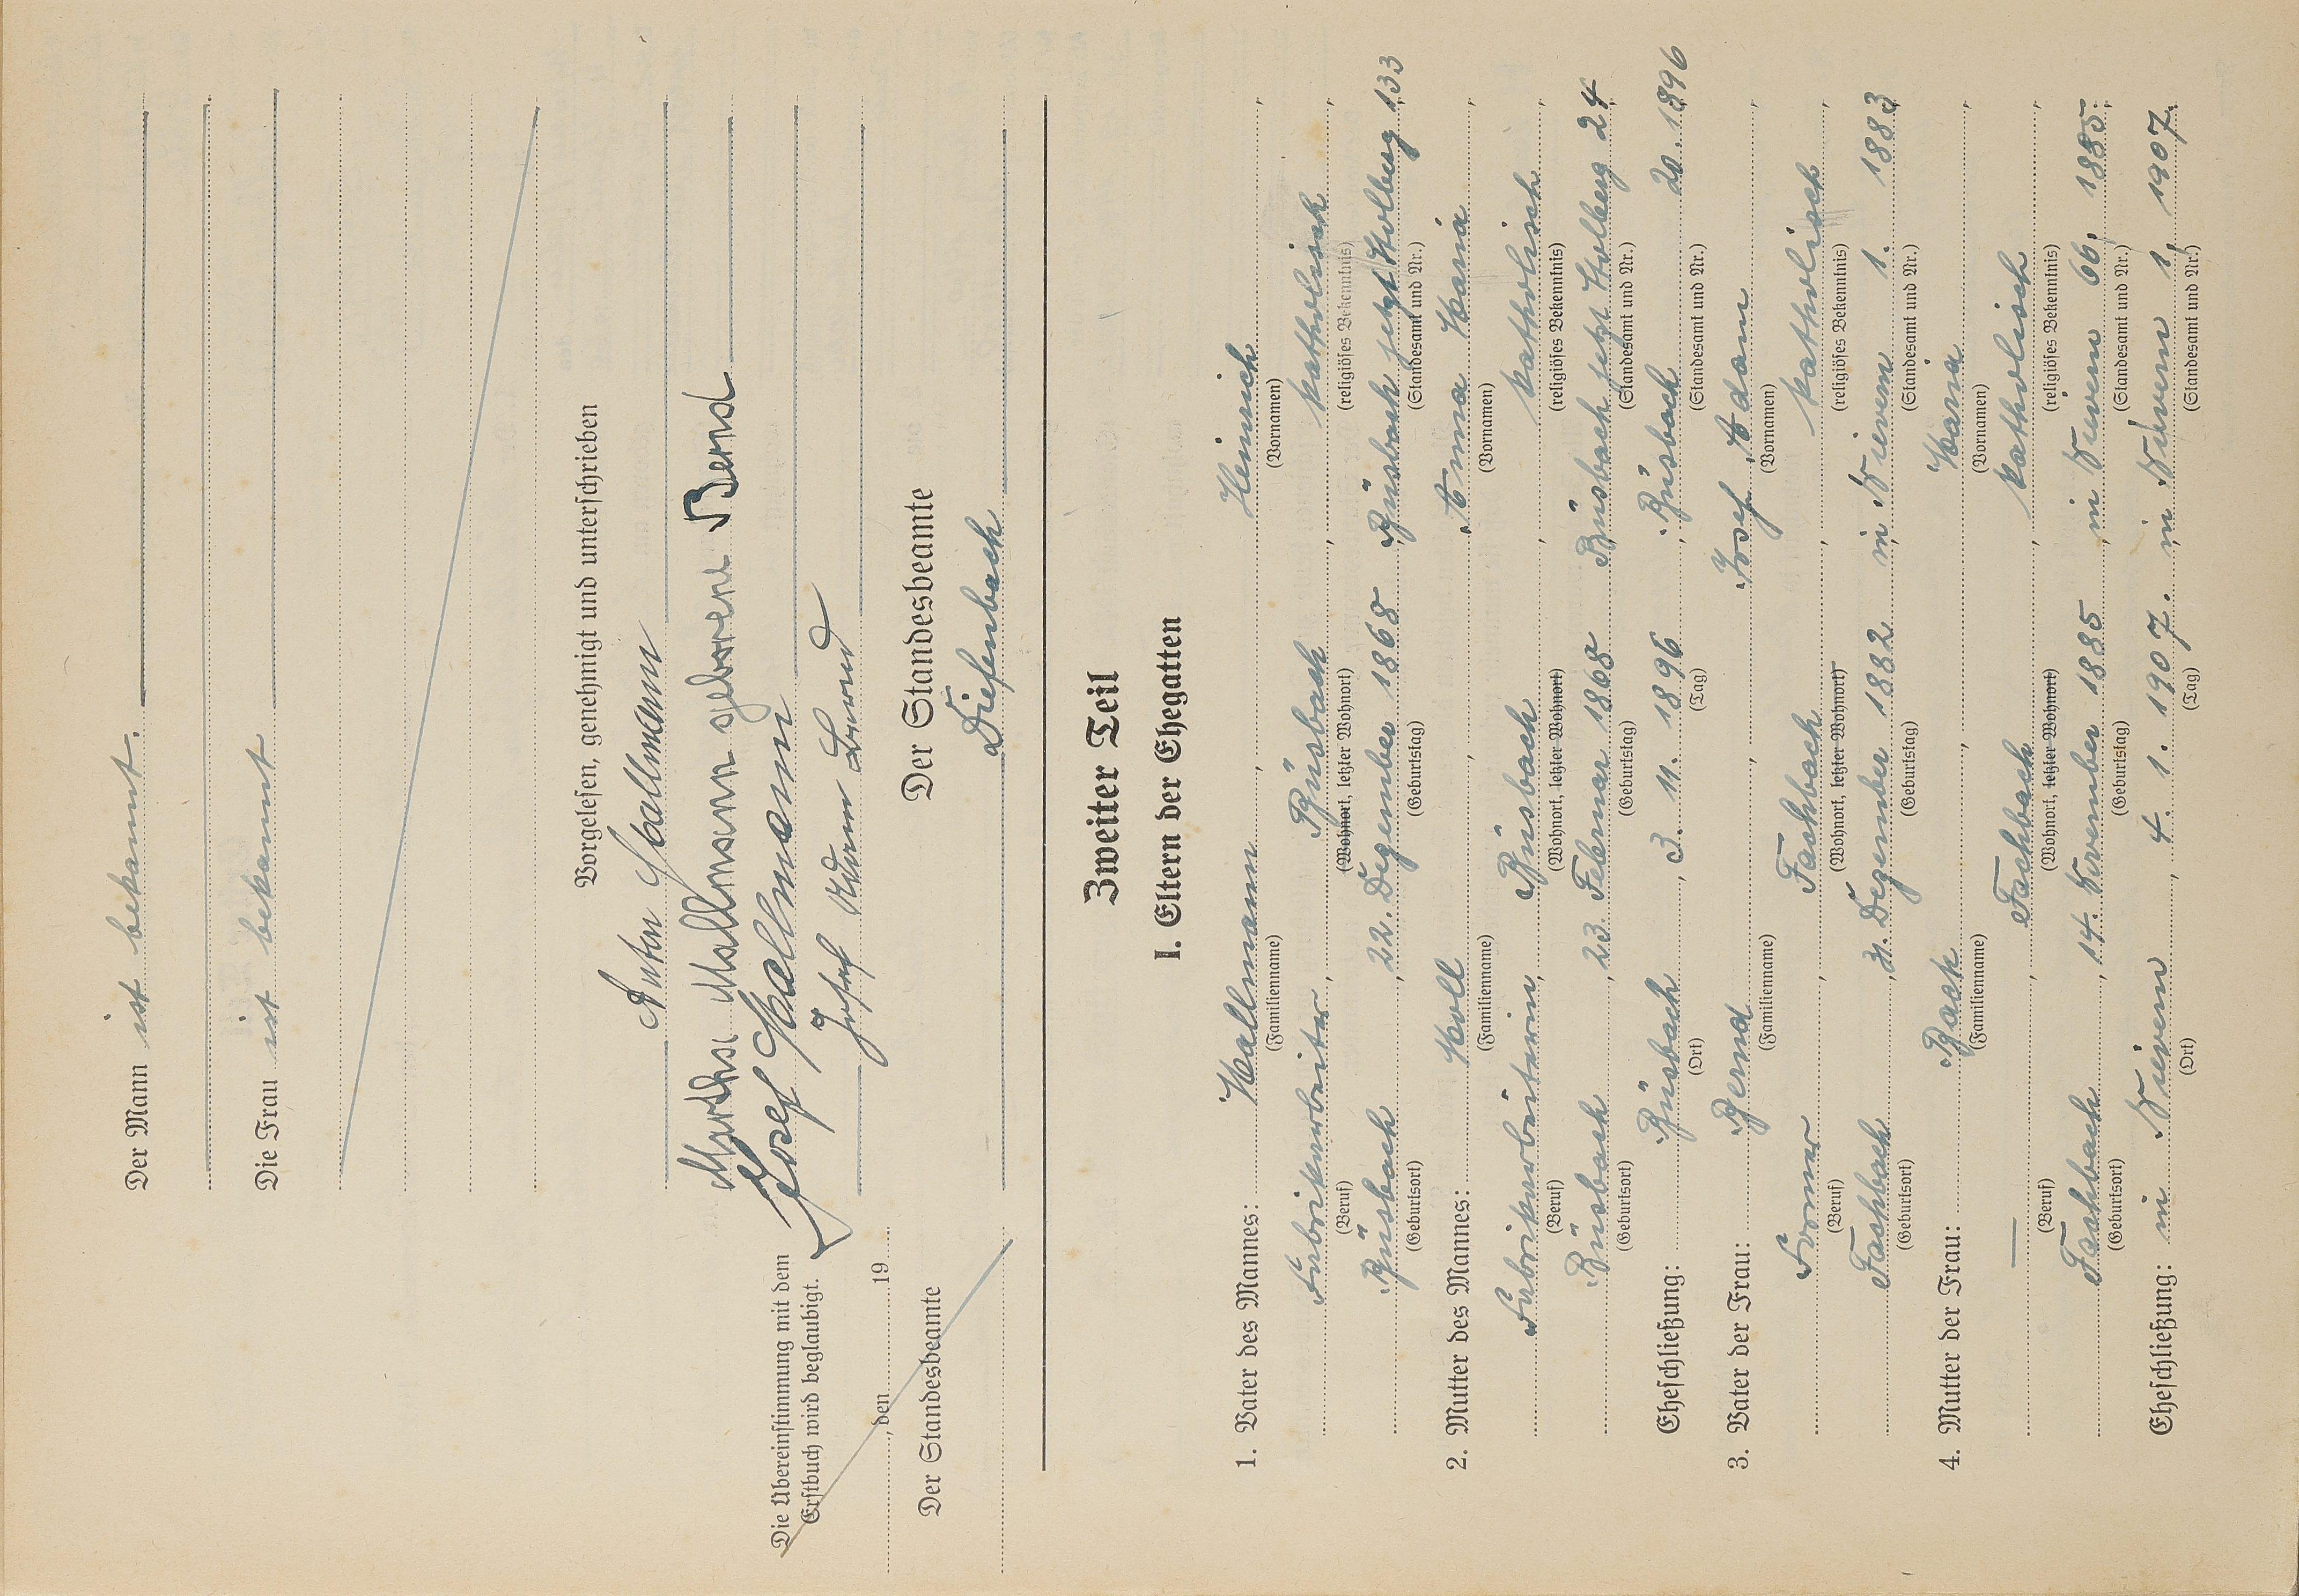 Der Mann ist bekannt.
Die Frau ist bekannt
Vorgelesen, genehmigt und unterschrieben
Anton Mallmann
Martha Mallmann geborene Bernd
Josef Mallmann
Josef Adam Bernd
Die Übereinstimmung mit dem
Erstbuch wird beglaubigt.
, den 19
Der Standesbeamte
Der Standesbeamte
Diefenbach
Zweiter Teil
I. Eltern der Ehegatten
1. Vater des Mannes: Mallmann, Heinrich,
(Familienname) (Vornamen)
Fabrikarbeiter, Büsbach, katholisch,
(Beruf) (Wohnort, letzter Wohnort) (religiöses Bekenntnis)
Büsbach, 22. Dezember 1868 Büsbach jetzt Stolberg 133
(Geburtsort) (Geburtstag) (Standesamt und Nr.)
2. Mutter des Mannes: Moll, Anna Maria,
(Familienname) (Vornamen)
Fabrikarbeiterin, Büsbach, katholisch,
(Beruf) (Wohnort, letzter Wohnort) (religiöses Bekenntnis)
Büsbach, 23. Februar 1868 Büsbach jetzt Stolberg 24
(Geburtsort) (Geburtstag) (Standesamt und Nr.)
Eheschließung: Büsbach, 3. 11. 1896, Büsbach 20. 1896
(Ort) (Tag) (Standesamt und Nr.)
3. Vater der Frau: Bernd, Josef Adam,
(Familienname) (Vornamen)
Former, Fachbach, katholisch,
(Beruf) (Wohnort, letzter Wohnort) (religiöses Bekenntnis)
Fachbach, 31. Dezember 1882 in Nievern 1. 1883
(Geburtsort) (Geburtstag) (Standesamt und Nr.)
4. Mutter der Frau: Back, Maria,
(Familienname) (Vornamen)
—, Fachbach, katholisch,
(Beruf) (Wohnort, letzter Wohnort) (religiöses Bekenntnis)
Fachbach, 14. November 1885, in Nievern 66, 1885.
(Geburtsort) (Geburtstag) (Standesamt und Nr.)
Eheschließung: in Nievern, 4. 1. 1907. in Nievern 1, 1907.
(Ort) (Tag) (Standesamt und Nr.)